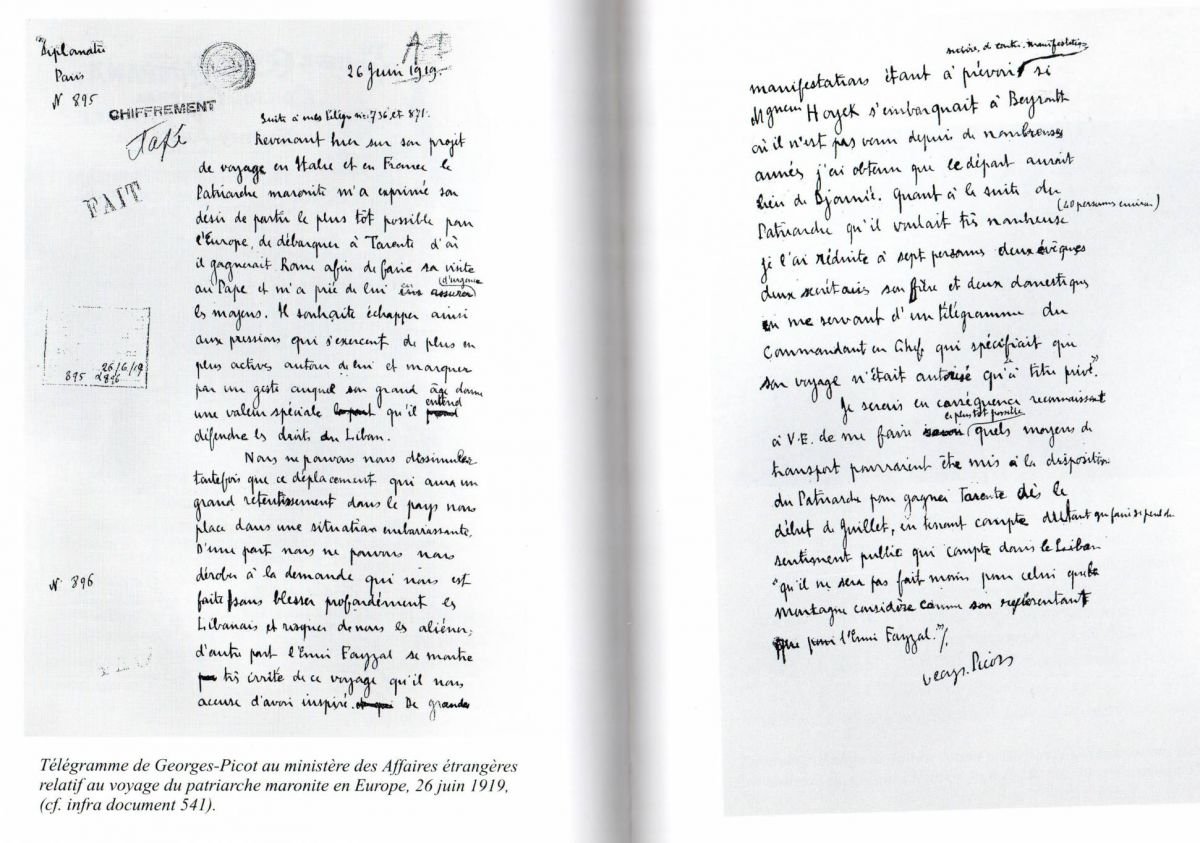 Diplomatie
Paris
N° 895
A-I
26 Juin 1919.
CHIFFREMENT
Tapé
FAIT
Suite à mes télégr. 736 et 871.
Revenant hier sur son projet
de voyage en Italie et en France le
Patriarche maronite m'a exprimé son
désir de partir le plus tôt possible pour
l'Europe, de débarquer à Tarente d'où
il gagnerait Rome afin de faire sa visite
au Pape et m'a prié de lui en assurer (d'urgence)
les moyens. Il souhaite échapper ainsi
aux pressions qui s'exercent de plus en
plus actives autour de lui et marquer
par un geste auquel son grand âge donne
une valeur spéciale qu'il entend
défendre les droits du Liban.
895 26/6/19
à 896
Nous ne pouvons nous dissimuler
toutefois que ce déplacement qui aura un
grand retentissement dans le pays nous
place dans une situation embarrassante.
D'une part nous ne pouvons nous
N° 896
dérober à la demande qui nous est
faite sans blesser profondément les
Libanais et risquer de nous les aliéner,
d'autre part l'Emir Fayzal se montre
très irrité de ce voyage qu'il nous
accuse d'avoir inspiré. De grandes
Télégramme de Georges-Picot au ministère des Affaires étrangères
relatif au voyage du patriarche maronite en Europe, 26 juin 1919,
(cf. infra document 541).
et contre-manifestations
manifestations étant à prévoir si
Mgneur Hoyek s'embarquait à Beyrouth
où il n'est pas venu depuis de nombreuses
années j'ai obtenu que le départ aurait
lieu de Djounié. Quant à la suite du
(40 personnes environ)
Patriarche qu'il voulait très nombreuse
je l'ai réduite à sept personnes deux évêques
deux secrétaires son frère et deux domestiques
en me servant d'un télégramme du
Commandant en Chef qui spécifiait que
son voyage n'était autorisé qu'à titre privé.
Je serais en conséquence reconnaissant
le plus tôt possible
à V.E. de me faire savoir quels moyens de
transport pourraient être mis à la disposition
du Patriarche pour gagner Tarente dès le
début de Juillet, en tenant compte du
sentiment public qui compte dans le Liban
"qu'il ne sera pas fait moins pour celui que la
montagne considère comme son représentant
que pour l'Emir Fayzal."/.
Georges. Picot